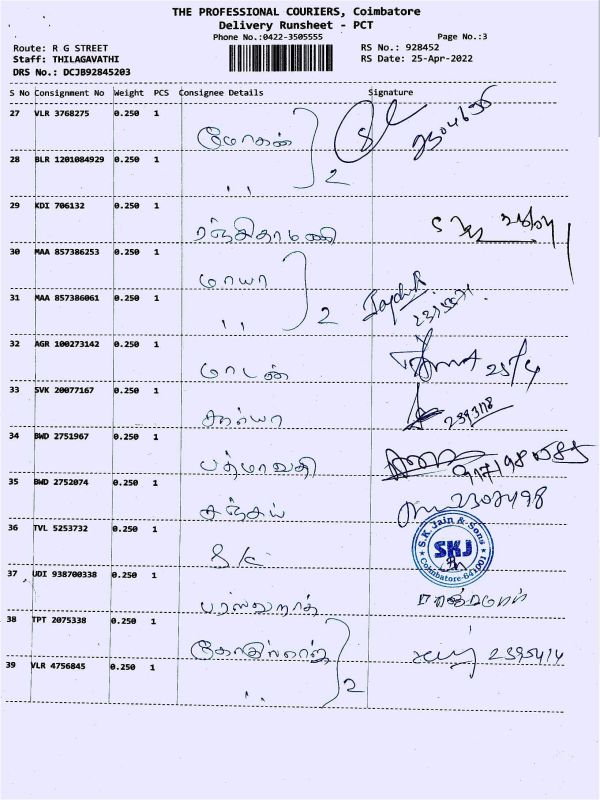 THE PROFESSIONAL COURIERS, Coimbatore
Delivery Runsheet - PCT
Phone No.:0422-3505555 Page No.:3
Route: R G STREET RS No.: 928452
Staff: THILAGAVATHI RS Date: 25-Apr-2022
DRS No.: DCJB92845203
S No Consignment No Weight PCS Consignee Details Signature
27 VLR 3768275 0.250 1
மோகன்
28 BLR 1201084929 0.250 1
,, 2
29 KDI 706132 0.250 1
ரஞ்சிதாமணி
30 MAA 857386253 0.250 1
மாயா
31 MAA 857386061 0.250 1
,, 2
32 AGR 100273142 0.250 1
மாடன் 25/4
33 SVK 20077167 0.250 1
2393118
34 BWD 2751967 0.250 1
பத்மாவதி
35 BWD 2752074 0.250 1
சஞ்சய்
36 TVL 5253732 0.250 1
S/c
S.K. Jain & Sons
SKJ
Coimbatore-641001
37 UDI 938700338 0.250 1
38 TPT 2075338 0.250 1
2395414
39 VLR 4756845 0.250 1
,, 2